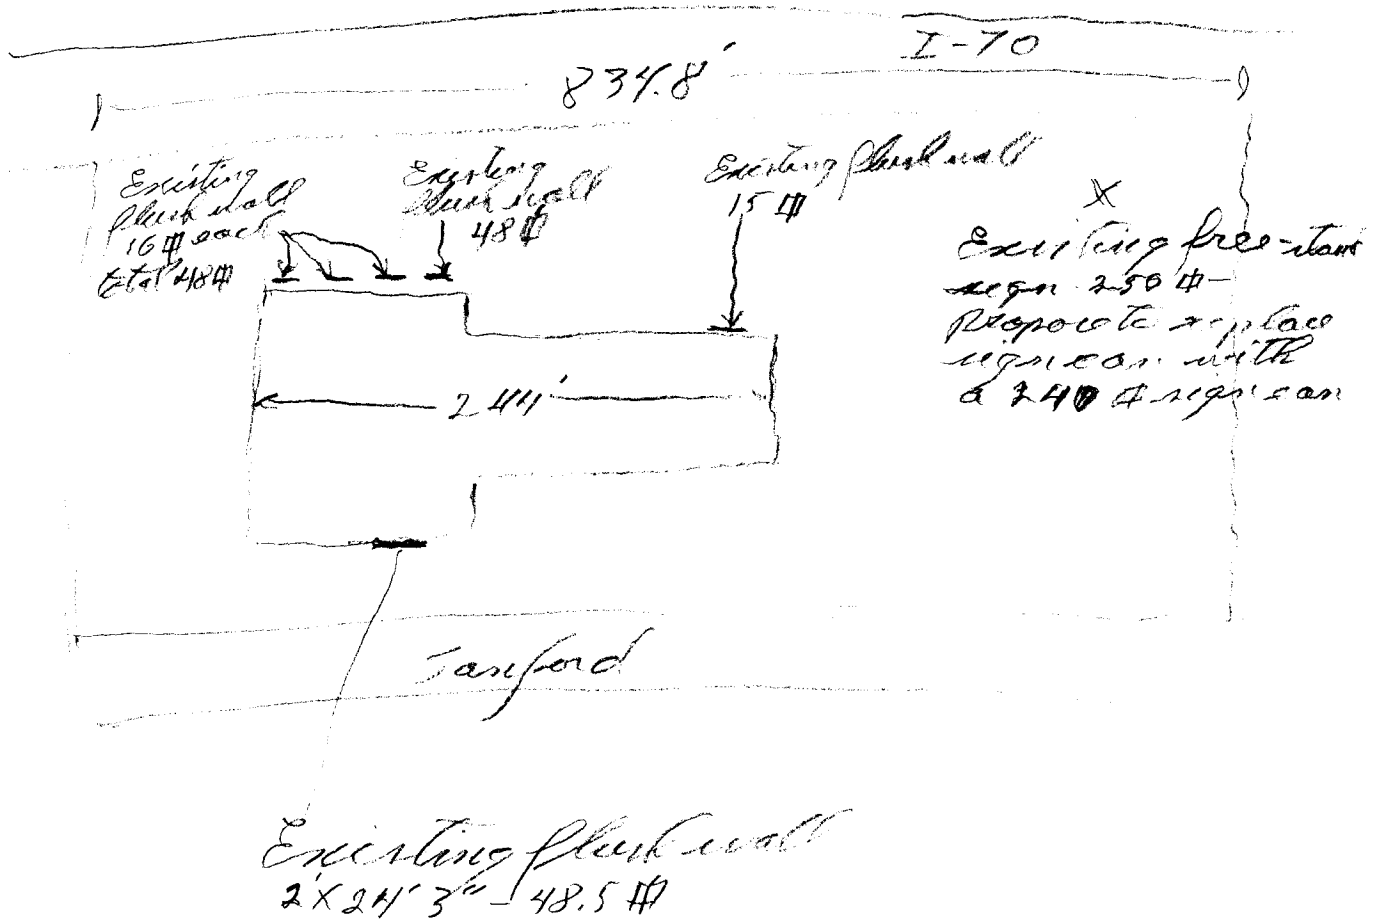 I-70
834.8'
Existing
flush wall
16 ⌗ each
total 48 ⌗
Existing
flush wall
48 ⌗
Existing flush wall
15 ⌗
X
Existing free-stand
sign 250 ⌗ -
Propose to replace
sign can with
a 240 ⌗ sign can
244'
Existing flush wall
2' X 24' 3" - 48.5 ⌗